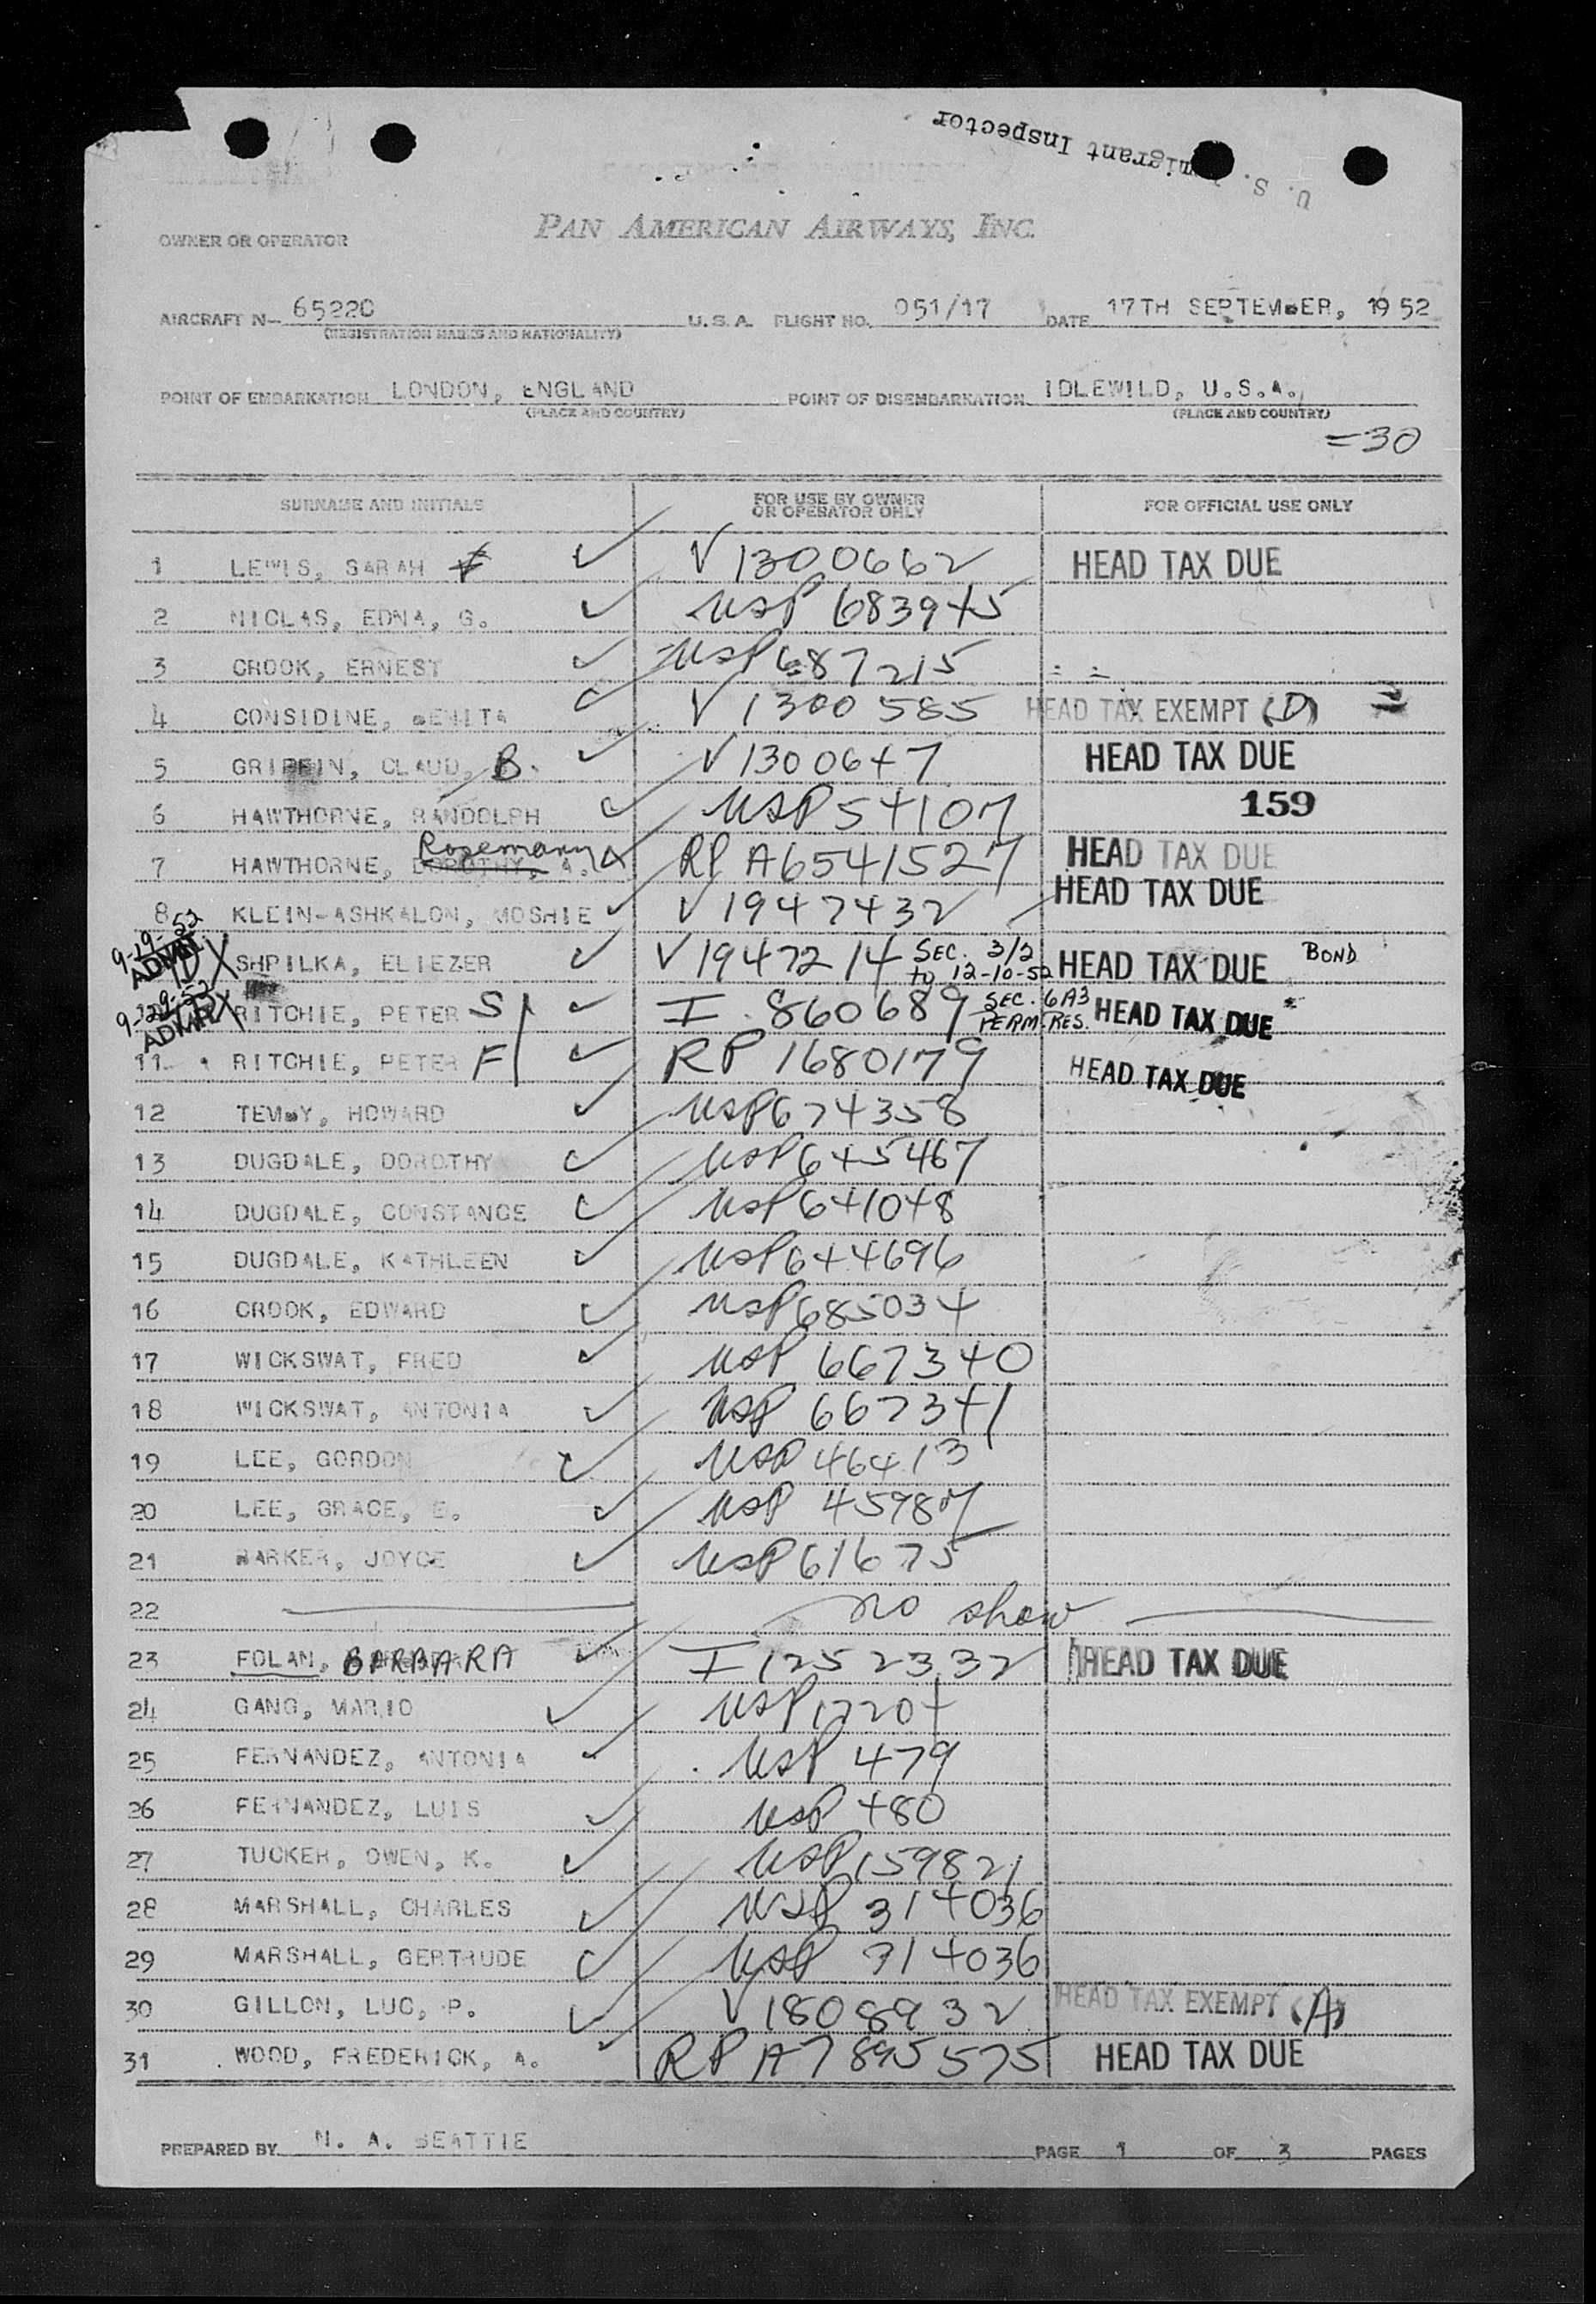 U. S. Immigrant Inspector
PAN AMERICAN AIRWAYS, INC.
OWNER OR OPERATOR
AIRCRAFT N- 6522C U.S.A. FLIGHT NO. 051/17 DATE 17TH SEPTEMBER, 1952
(REGISTRATION MARKS AND NATIONALITY)
POINT OF EMBARKATION LONDON, ENGLAND POINT OF DISEMBARKATION IDLEWILD, U.S.A.,
(PLACE AND COUNTRY) (PLACE AND COUNTRY)
=30
SURNAME AND INITIALS FOR USE BY OWNER OR OPERATOR ONLY FOR OFFICIAL USE ONLY
1 LEWIS, SARAH ✓ V 1300662 HEAD TAX DUE
2 NICLAS, EDNA, G. ✓ USP 683945
3 CROOK, ERNEST ✓ USP 687215
4 CONSIDINE, BENITA ✓ V 1300585 HEAD TAX EXEMPT (D)
5 GRIFFIN, CLAUD, B. ✓ V 1300647 HEAD TAX DUE
6 HAWTHORNE, RANDOLPH ✓ USP 54107 159
7 HAWTHORNE, DOROTHY, A. Rosemary RP A6541527 HEAD TAX DUE
8 KLEIN-ASHKALON, MOSHIE ✓ V 1947432 HEAD TAX DUE
9-19-52 ADMIT. X SHPILKA, ELIEZER ✓ V 1947214 SEC. 3/2 to 12-10-52 HEAD TAX DUE BOND
ADMIT X RITCHIE, PETER S ✓ I 860689 SEC. 6A3 PERM. RES. HEAD TAX DUE
11 RITCHIE, PETER F ✓ RP 1680179 HEAD TAX DUE
12 TEMBY, HOWARD ✓ USP 674358
13 DUGDALE, DOROTHY ✓ USP 645467
14 DUGDALE, CONSTANCE ✓ USP 641048
15 DUGDALE, KATHLEEN ✓ USP 644696
16 CROOK, EDWARD ✓ USP 685034
17 WICKSWAT, FRED ✓ USP 667340
18 WICKSWAT, ANTONIA ✓ USP 667341
19 LEE, GORDON ✓ USP 46413
20 LEE, GRACE, E. ✓ USP 45987
21 BARKER, JOYCE ✓ USP 61675
22 no show
23 FOLAN, BARBARA ✓ I 1252332 HEAD TAX DUE
24 GANG, MARIO ✓ USP 17204
25 FERNANDEZ, ANTONIA ✓ USP 479
26 FERNANDEZ, LUIS ✓ USP 480
27 TUCKER, OWEN, K. ✓ USP 159821
28 MARSHALL, CHARLES ✓ USP 314036
29 MARSHALL, GERTRUDE ✓ USP 314036
30 GILLON, LUC, P. ✓ V 1808932 HEAD TAX EXEMPT (A)
31 WOOD, FREDERICK, A. ✓ RP A7895575 HEAD TAX DUE
PREPARED BY N. A. BEATTIE PAGE 1 OF 3 PAGES